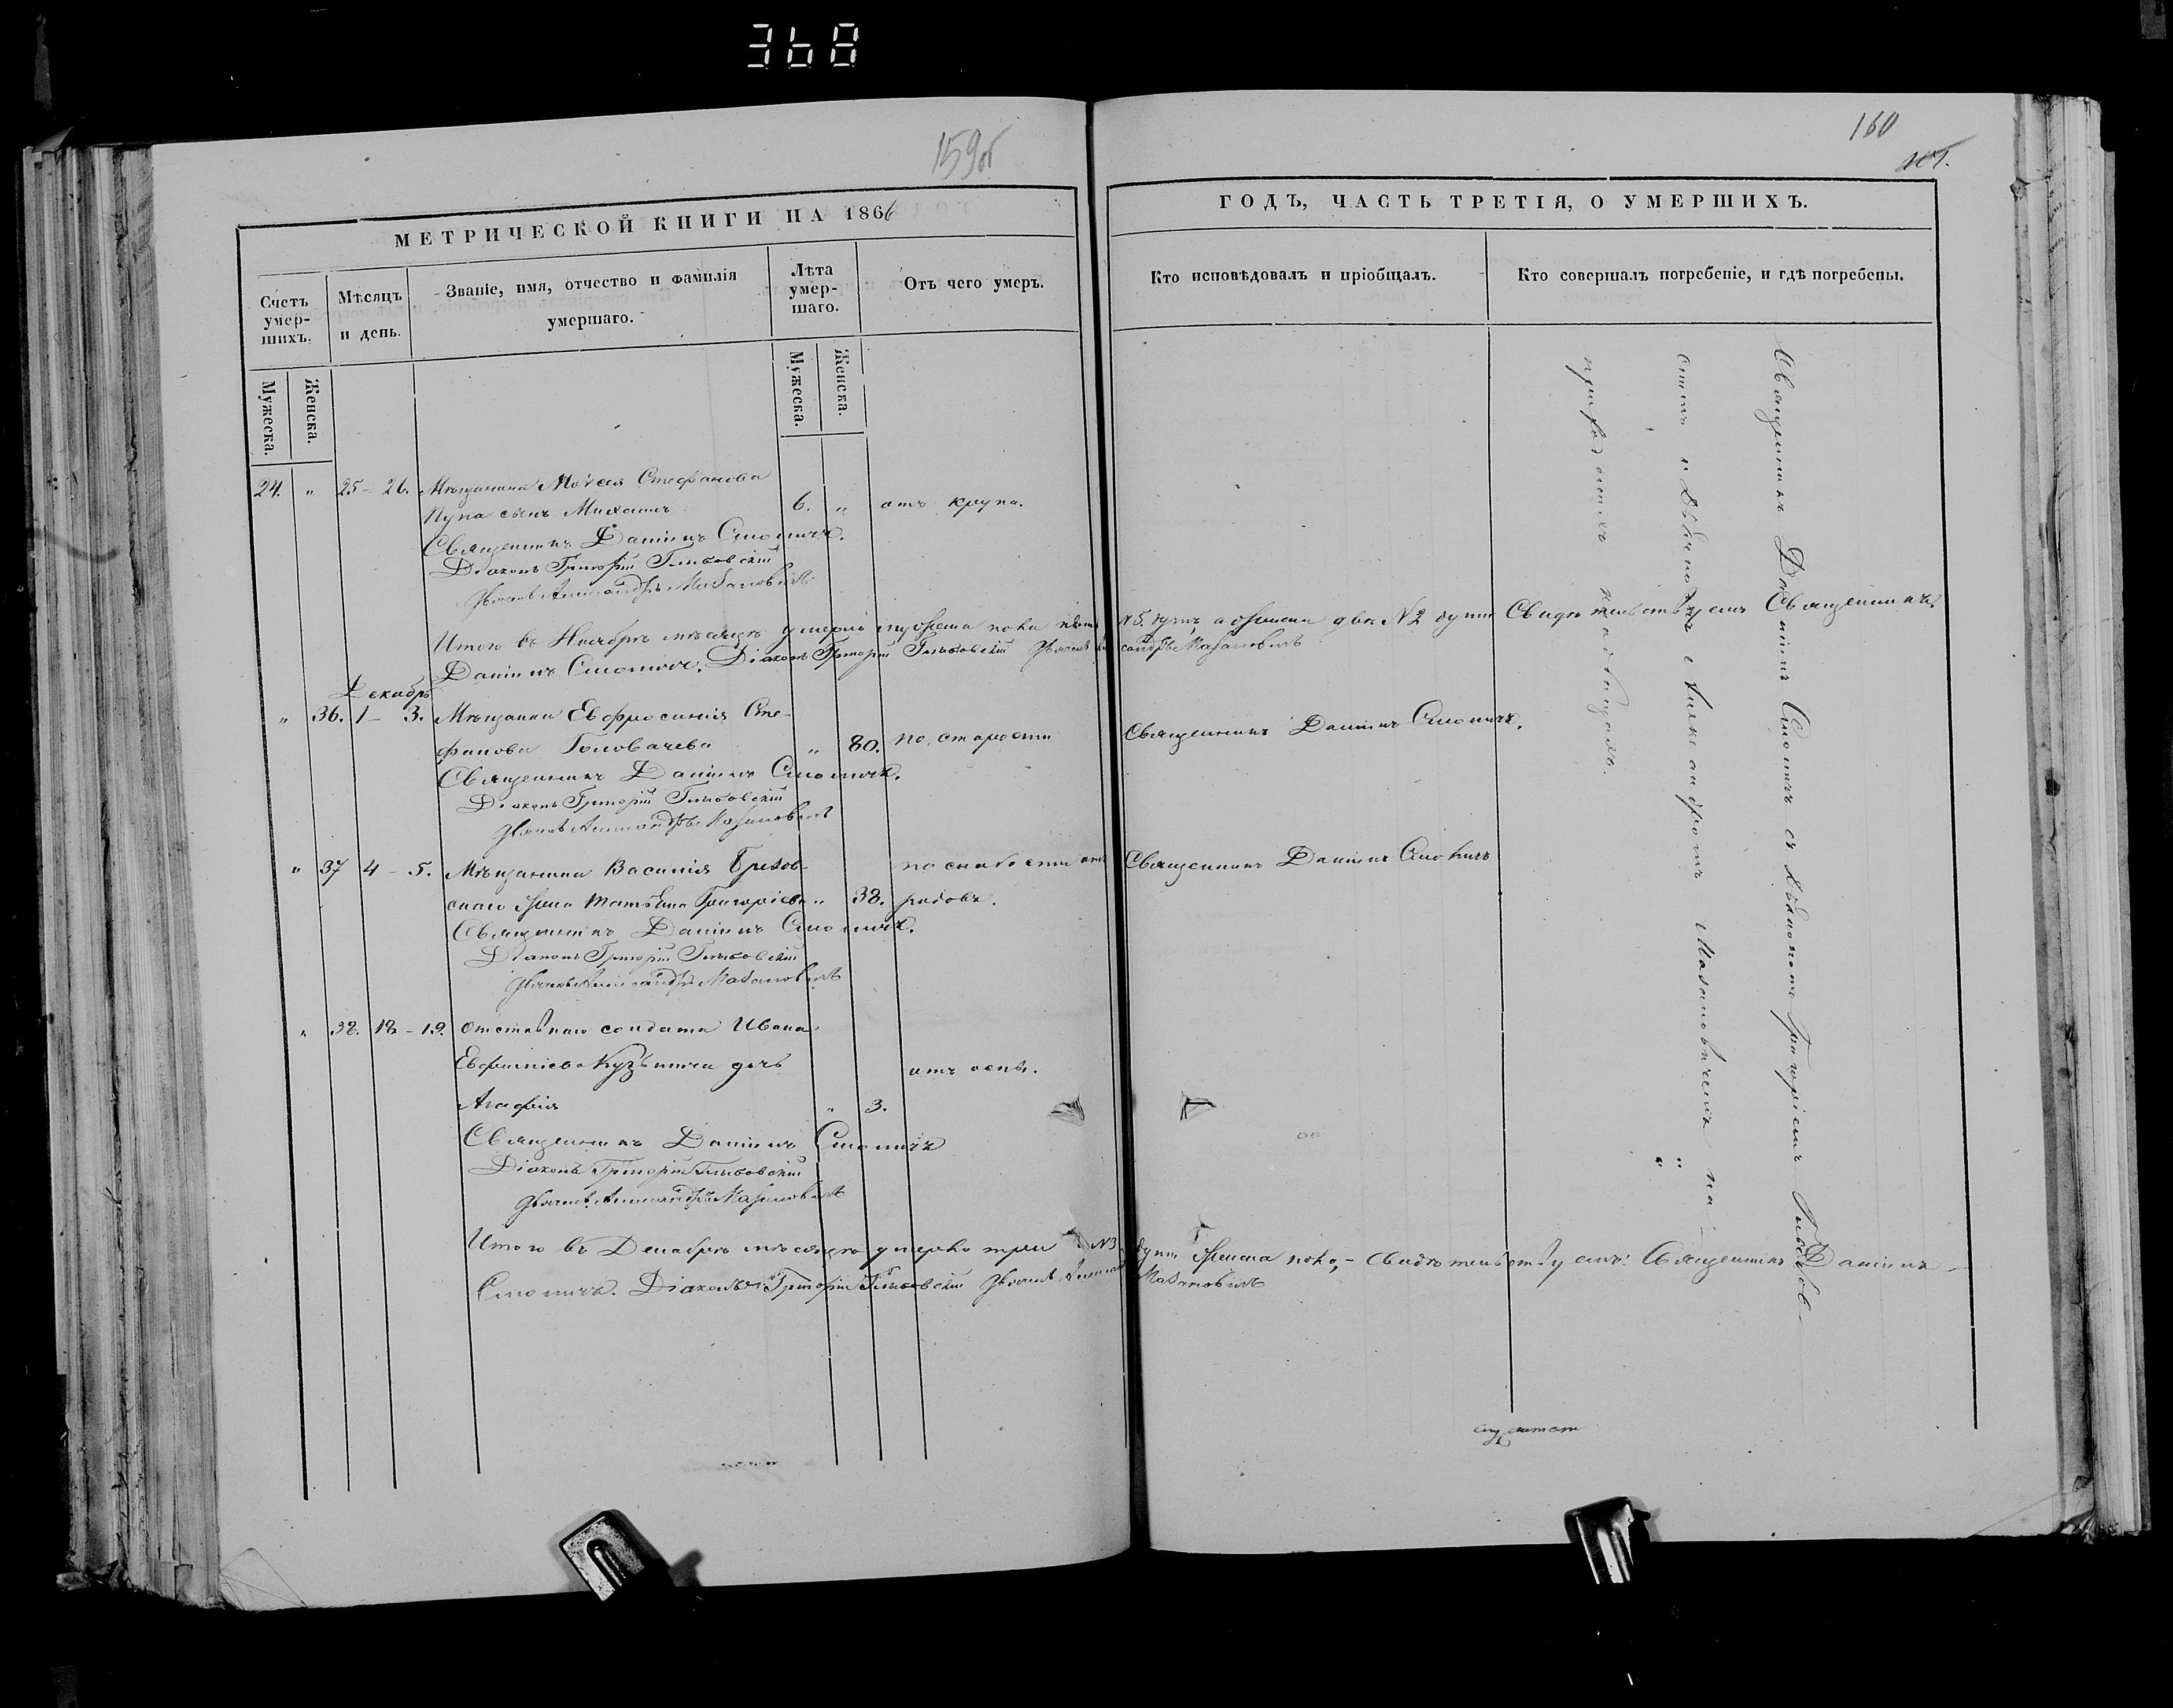 368
159об
МЕТРИЧЕСКОЙ КНИГИ НА 1866
Счетъ умер-шихъ.
Мѣсяцъ и день.
Званіе, имя, отчество и фамилія умершаго.
Лѣта умер-шаго.
Отъ чего умеръ.
Мужеска.
Женска.
Мужеска.
Женска.
24. " 25 - 26. Мѣщанина Моѵсея Стефанова
сынъ Михаилъ 6. " отъ крупа.
Священникъ Даніилъ Смоличъ.
Діаконъ Григорій Глыбовскій
Дьячекъ Александръ Мазановичъ
Итого въ Ноябрѣ мѣсяцѣ умерло мужеска пола пять
Даніилъ Смоличъ. Діаконъ Григорій Глыбовскій Дьячекъ
Декабрь
" 36. 1 - 3. Мѣщанка Евфросинія Сте-
фанова Головачева " 80. по старости
Священникъ Даніилъ Смоличъ.
Діаконъ Григорій Глыбовскій
Дьячекъ Александръ Мазановичъ
" 37 4 - 5. Мѣщанина Василія
жена Татьяна Григоріева " 38. по слабости отъ родовъ.
Священникъ Даніилъ Смоличъ.
Діаконъ Григорій Глыбовскій
Дьячекъ Александръ Мазановичъ
" 38. 18 - 19. Отставнаго солдата Ивана
Евфиміева Кузьмича дочь отъ оспы.
Агафія " 3.
Священникъ Даніилъ Смоличъ
Діаконъ Григорій Глыбовскій
Дьячекъ Александръ Мазановичъ
Итого въ Декабрѣ мѣсяцѣ умерло три №3
Смоличъ. Діаконъ Григорій Глыбовскій Дьячекъ
160
ГОДЪ, ЧАСТЬ ТРЕТІЯ, О УМЕРШИХЪ.
Кто исповѣдовалъ и пріобщалъ.
Кто совершалъ погребеніе, и гдѣ погребены.
№5. душъ а женска двѣ №2 души Свидѣтельствуемъ Священникъ
Мазановичъ
Священникъ Даніилъ Смоличъ.
Священникъ Даніилъ Смоличъ
души женска пола, - свидѣтельствуемъ: Священникъ Даніилъ
Мазановичъ
Священникъ Даніилъ Смоличъ съ Діакономъ Григоріемъ Глыбов-
скимъ и Дьячкомъ Александромъ Мазановичемъ на
приходскихъ кладбищахъ.